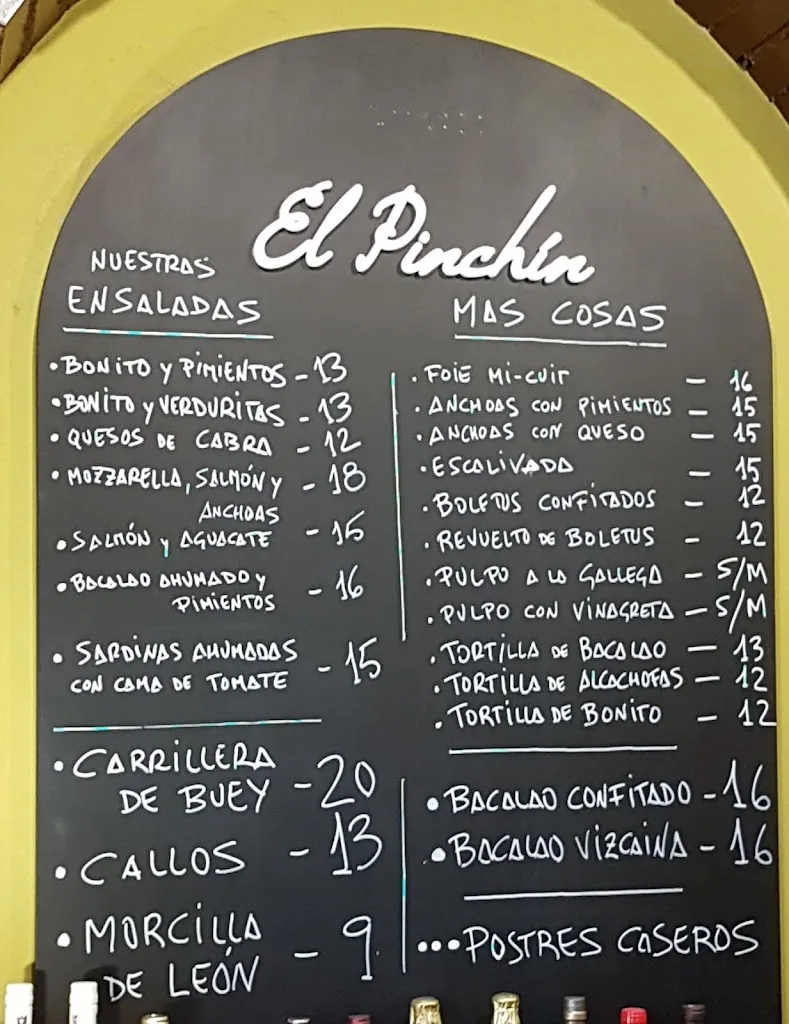 El Pinchín
NUESTRAS
ENSALADAS
• BONITO Y PIMIENTOS - 13
• BONITO Y VERDURITAS - 13
• QUESOS DE CABRA - 12
• MOZZARELLA, SALMÓN Y - 18
ANCHOAS
• SALMÓN Y AGUACATE - 15
• BACALAO AHUMADO Y - 16
PIMIENTOS
• SARDINAS AHUMADAS - 15
CON CAMA DE TOMATE
• CARRILLERA
DE BUEY - 20
• CALLOS - 13
• MORCILLA - 9
DE LEÓN
MAS COSAS
• FOIE MI-CUIT - 16
• ANCHOAS CON PIMIENTOS - 15
• ANCHOAS CON QUESO - 15
• ESCALIVADA - 15
• BOLETUS CONFITADOS - 12
• REVUELTO DE BOLETUS - 12
• PULPO A LA GALLEGA - S/M
• PULPO CON VINAGRETA - S/M
• TORTILLA DE BACALAO - 13
• TORTILLA DE ALCACHOFAS - 12
• TORTILLA DE BONITO - 12
• BACALAO CONFITADO - 16
• BACALAO VIZCAINA - 16
...POSTRES CASEROS